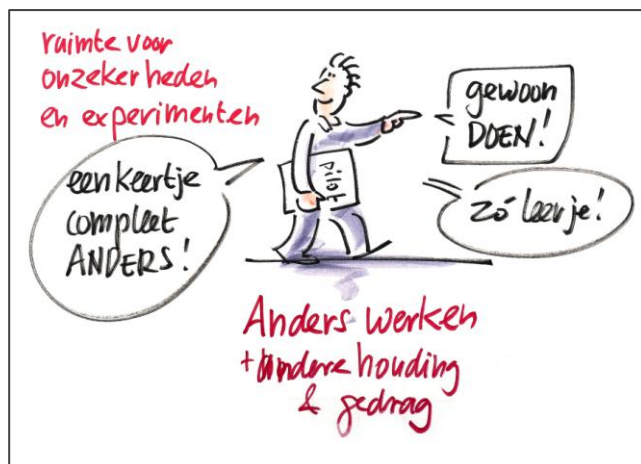 ruimte voor
onzekerheden
en experimenten
een keertje
compleet
ANDERS!
gewoon
DOEN!
zó leer je!
PILOT
Anders werken
+ andere houding
& gedrag